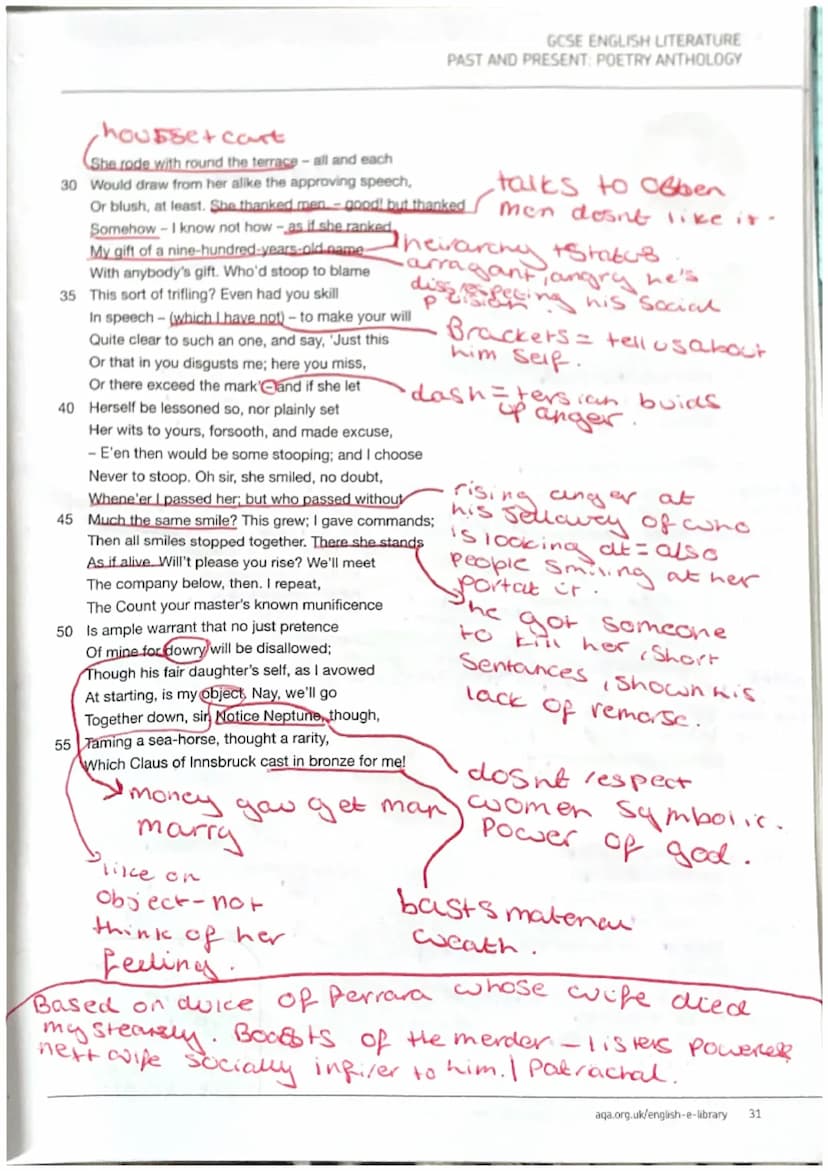 GCSE ENGLISH LITERATURE
PAST AND PRESENT: POETRY ANTHOLOGY
She rode with round the terrace – all and each
30 Would draw from her alike the approving speech,
Or blush, at least. She thanked men, – good! but thanked
Somehow – I know not how – as if she ranked
My gift of a nine-hundred-years-old name
With anybody's gift. Who'd stoop to blame
35 This sort of trifling? Even had you skill
In speech – (which I have not) – to make your will
Quite clear to such an one, and say, 'Just this
Or that in you disgusts me; here you miss,
Or there exceed the mark' – and if she let
40 Herself be lessoned so, nor plainly set
Her wits to yours, forsooth, and made excuse,
– E'en then would be some stooping; and I choose
Never to stoop. Oh sir, she smiled, no doubt,
Whene'er I passed her; but who passed without
45 Much the same smile? This grew; I gave commands;
Then all smiles stopped together. There she stands
As if alive. Will't please you rise? We'll meet
The company below, then. I repeat,
The Count your master's known munificence
50 Is ample warrant that no just pretence
Of mine for dowry will be disallowed;
Though his fair daughter's self, as I avowed
At starting, is my object. Nay, we'll go
Together down, sir. Notice Neptune, though,
55 Taming a sea-horse, thought a rarity,
Which Claus of Innsbruck cast in bronze for me!
+ cart
talks to
men dosnt like it.
heirarchy + status
arragant, angry he's
his social
Brackets = tell us about
him self.
dash =
up anger.
rising anger at
his of who
is looking at = also
people smiling at her
he got someone
to kill her, short
sentances, shown his
lack of remorse.
dosnt respect
women symbolic.
power of god.
money get man
marry
like on
object – not
think of her
feeling.
basts
weath.
Based on of whose wife died
. of the merder –
next wife socially to him. | Patrachal.
aqa.org.uk/english-e-library 31